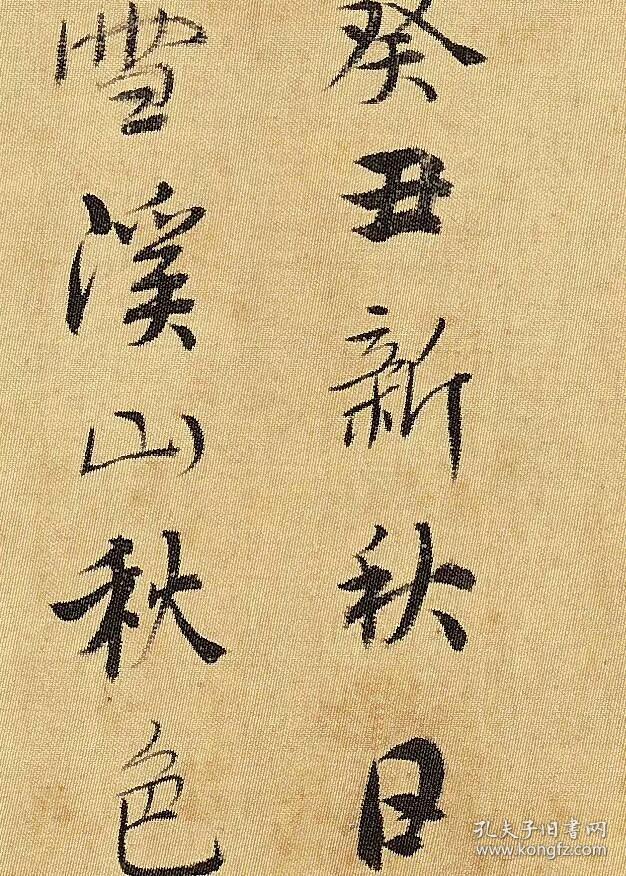 癸丑新秋日
溪山秋色
孔夫子旧書网
www.kongfz.com